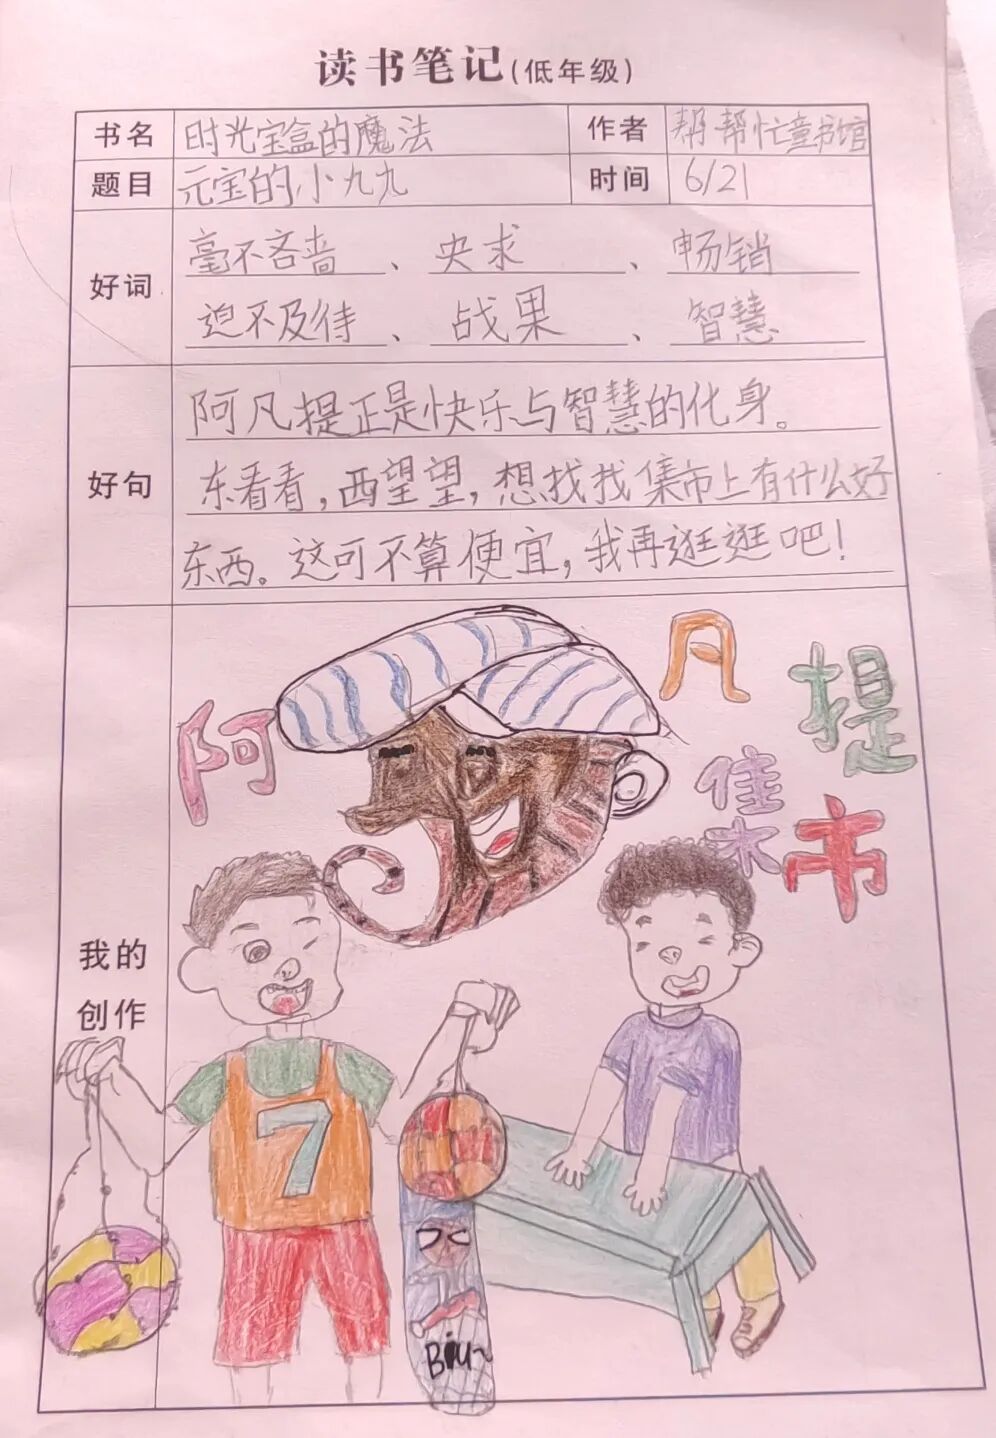 读书笔记(低年级)
书名 时光宝盒的魔法 作者 帮帮忙童书馆
题目 元宝的小九九 时间 6/21
好词 毫不吝啬、央求、畅销
迫不及待、战果、智慧
好句 阿凡提正是快乐与智慧的化身。
东看看,西望望,想找找集市上有什么好
东西。这可不算便宜,我再逛逛吧!
我的
创作
阿凡提
集市
7
Biu~